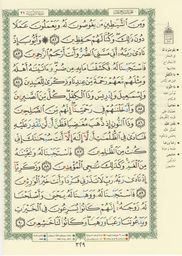 وَمِنَ ٱلشَّيَٰطِينِ مَن يَغُوصُونَ لَهُۥ وَيَعْمَلُونَ عَمَلًا
دُونَ ذَٰلِكَ وَكُنَّا لَهُمْ حَٰفِظِينَ ٨٢ وَأَيُّوبَ إِذْ
نَادَىٰ رَبَّهُۥٓ أَنِّى مَسَّنِىَ ٱلضُّرُّ وَأَنتَ أَرْحَمُ ٱلرَّٰحِمِينَ ٨٣
فَٱسْتَجَبْنَا لَهُۥ فَكَشَفْنَا مَا بِهِۦ مِن ضُرٍّ وَءَاتَيْنَٰهُ أَهْلَهُۥ
وَمِثْلَهُم مَّعَهُمْ رَحْمَةً مِّنْ عِندِنَا وَذِكْرَىٰ لِلْعَٰبِدِينَ ٨٤
وَإِسْمَٰعِيلَ وَإِدْرِيسَ وَذَا ٱلْكِفْلِ كُلٌّ مِّنَ ٱلصَّٰبِرِينَ ٨٥
وَأَدْخَلْنَٰهُمْ فِى رَحْمَتِنَآ إِنَّهُم مِّنَ ٱلصَّٰلِحِينَ ٨٦
وَذَا ٱلنُّونِ إِذ ذَّهَبَ مُغَٰضِبًا فَظَنَّ أَن لَّن نَّقْدِرَ عَلَيْهِ
فَنَادَىٰ فِى ٱلظُّلُمَٰتِ أَن لَّآ إِلَٰهَ إِلَّآ أَنتَ سُبْحَٰنَكَ إِنِّى
كُنتُ مِنَ ٱلظَّٰلِمِينَ ٨٧ فَٱسْتَجَبْنَا لَهُۥ وَنَجَّيْنَٰهُ
مِنَ ٱلْغَمِّ وَكَذَٰلِكَ نُۨجِى ٱلْمُؤْمِنِينَ ٨٨ وَزَكَرِيَّآ
إِذْ نَادَىٰ رَبَّهُۥ رَبِّ لَا تَذَرْنِى فَرْدًا وَأَنتَ خَيْرُ ٱلْوَٰرِثِينَ ٨٩
فَٱسْتَجَبْنَا لَهُۥ وَوَهَبْنَا لَهُۥ يَحْيَىٰ وَأَصْلَحْنَا
لَهُۥ زَوْجَهُۥٓ إِنَّهُمْ كَانُوا۟ يُسَٰرِعُونَ فِى ٱلْخَيْرَٰتِ
وَيَدْعُونَنَا رَغَبًا وَرَهَبًا وَكَانُوا۟ لَنَا خَٰشِعِينَ ٩٠
٣٢٩